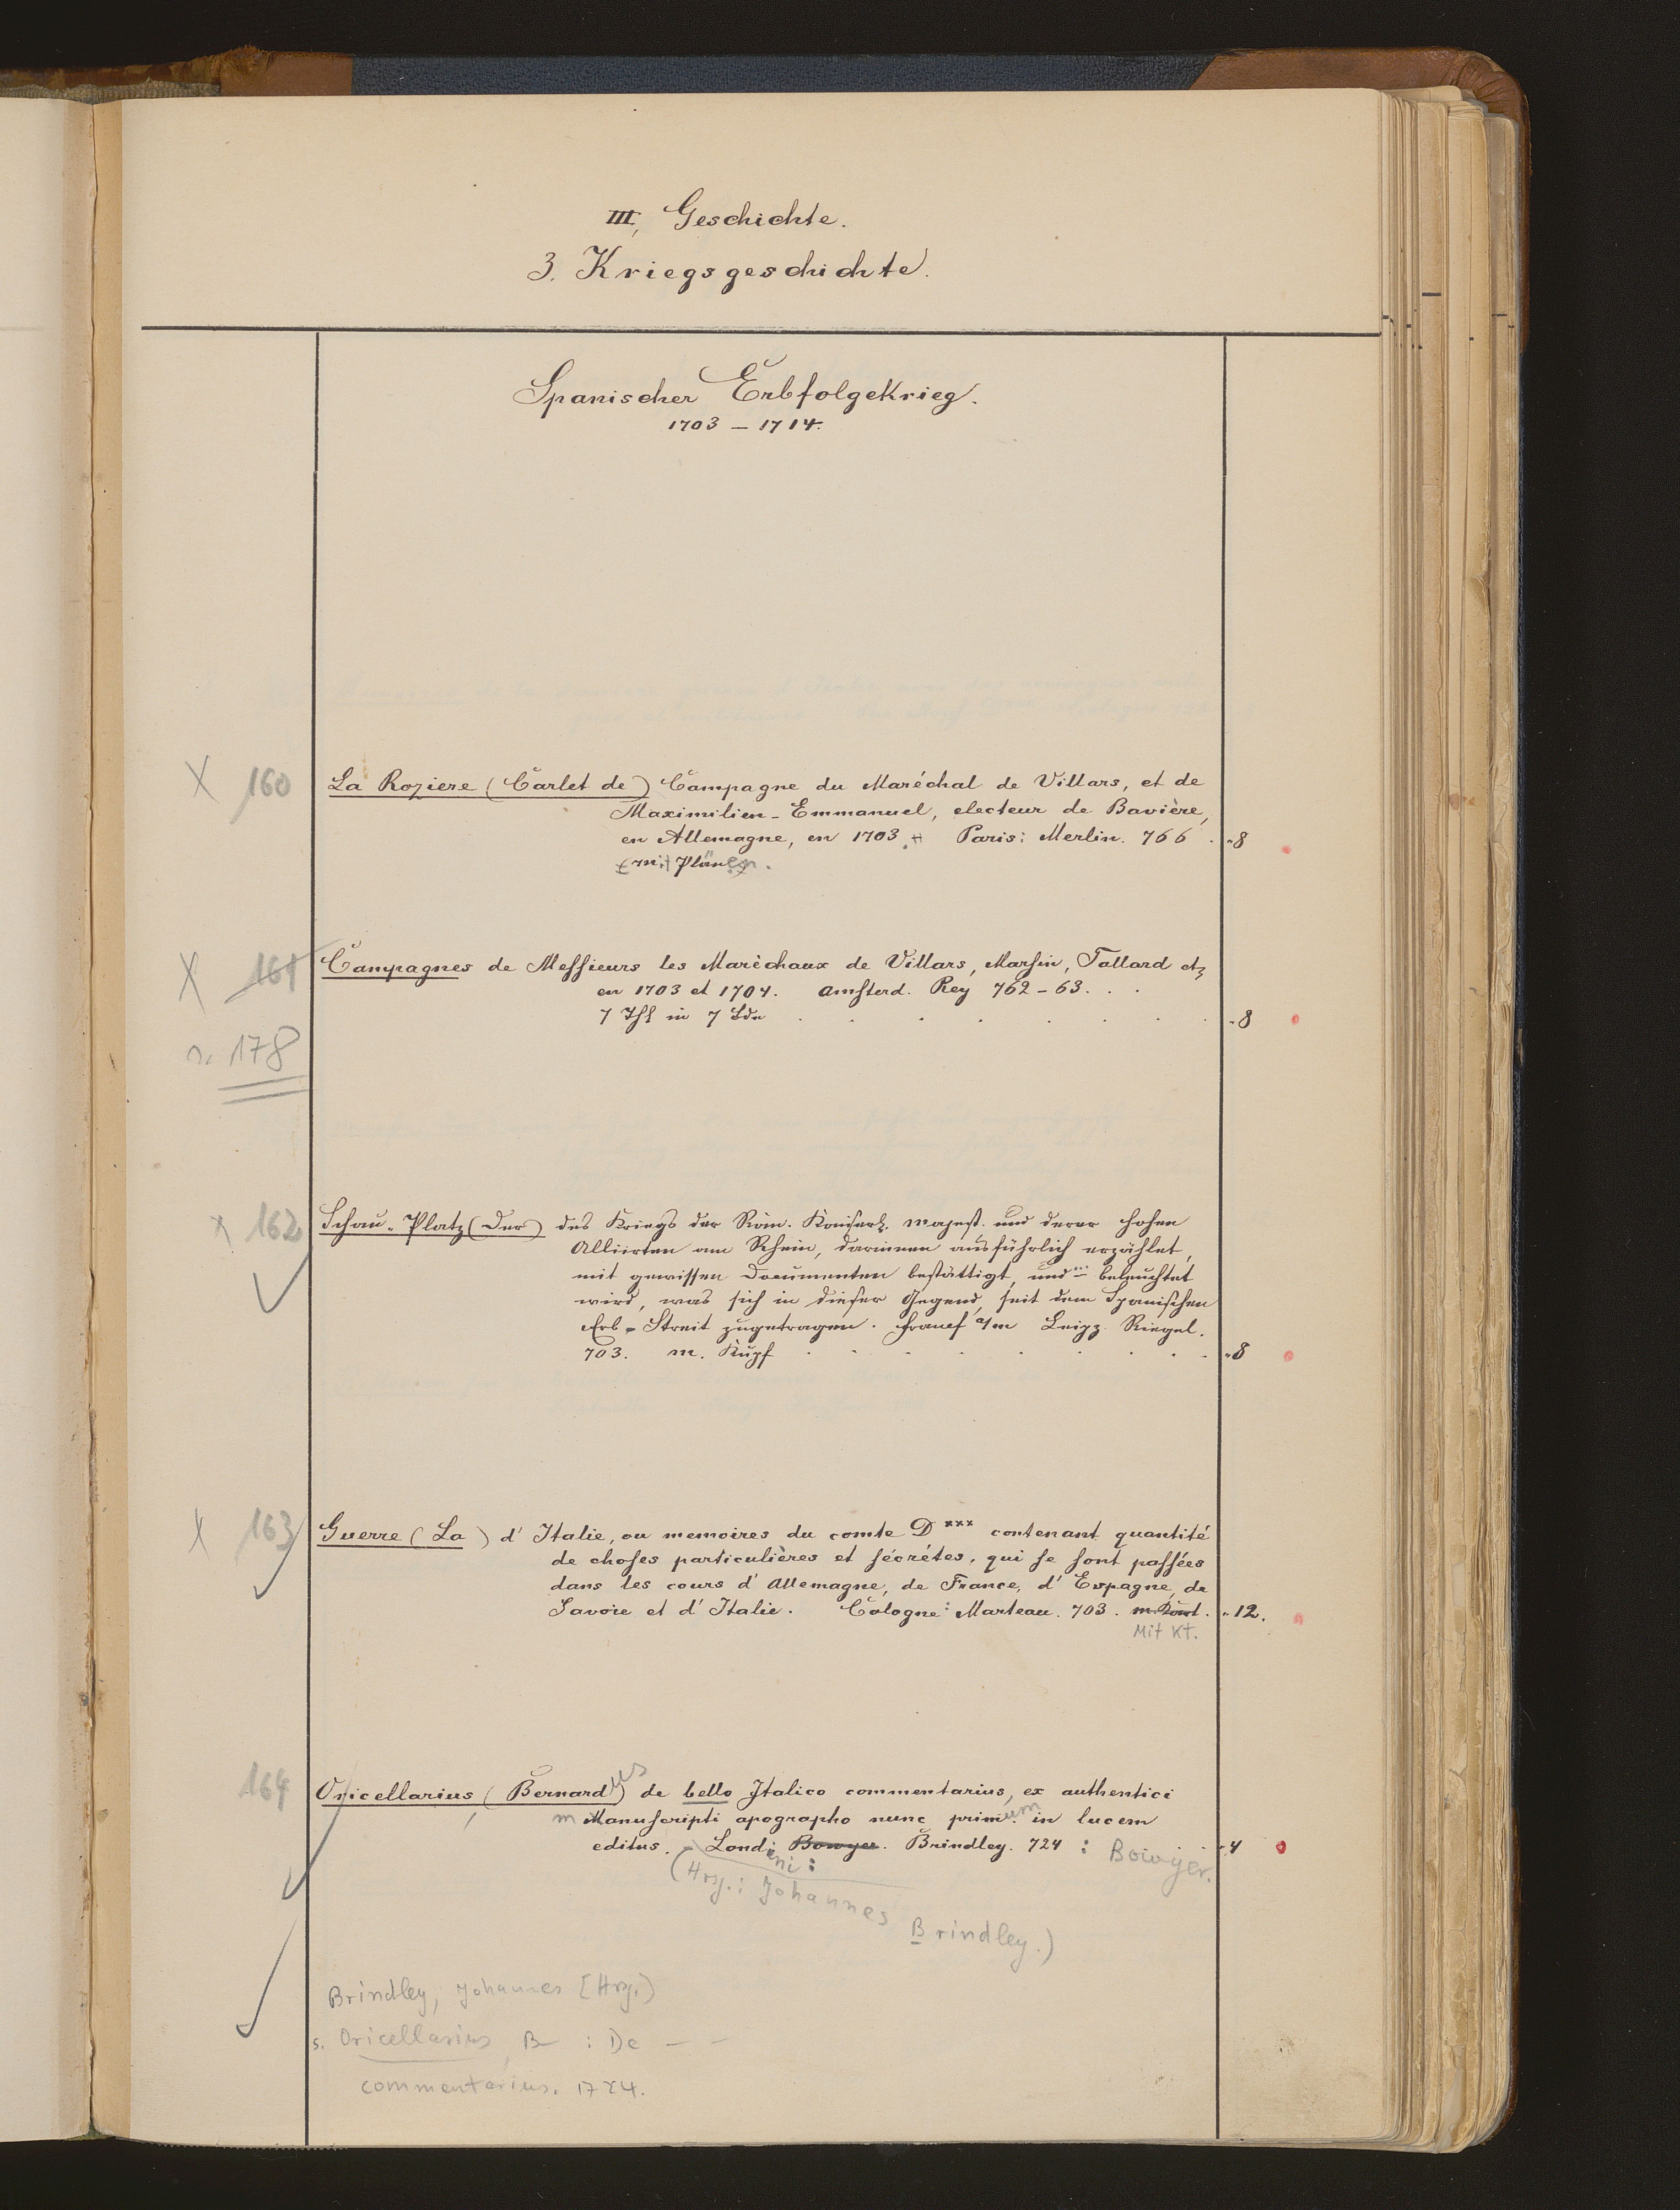 III, Geschichte.
3. Kriegsgeschichte.
Spanischer Erbfolgekrieg.
1703 – 1714.
X 160 La Roziere (Carlet de) Campagne du Maréchal de Villars, et de
Maximilien-Emmanuel, electeur de Bavière,
en Allemagne, en 1703. Paris: Merlin. 766 . "8
(mit Plänen).
X 161 Campagnes de Messieurs les Maréchaux de Villars, Marsin, Tallard etz
en 1703 et 1704. Amsterd. Rey 762–63. . .
7 Thl in 7 Bde . . . . . . . . "8
178
x 162 Schau-Platz (Der) des Kriegs der Röm. Kaiserl. Majest. und derer hohen
Alliirten am Rhein, darinnen ausführlich erzählet,
mit gewissen Documenten bestättigt, und beleuchtet
wird, was sich in dieser Gegend, seit dem Spanischen
Erb-Streit zugetragen. Francf a/m Leipz. Riegel.
703. m. Kupf . . . . . . . . "8
X 163 Guerre (La) d'Italie, ou memoires du comte D*** contenant quantité
de choses particulières et sécrétes, qui se sont passées
dans les cours d'Allemagne, de France, d'Espagne, de
Savoie et d'Italie. Cologne: Marteau. 703. m. Kart. "12.
Mit Kt.
164 Oricellarius, (Bernardus) de bello Italico commentarius, ex authentici
manuscripti apographo nunc primum in lucem
editus. – Londini: Bowyer. Brindley. 724 : Bowyer. "4
(Hrsg.: Johannes Brindley.)
Brindley, Johannes [Hrsg.)
s. Oricellarius, B : De – –
commentarius. 1724.